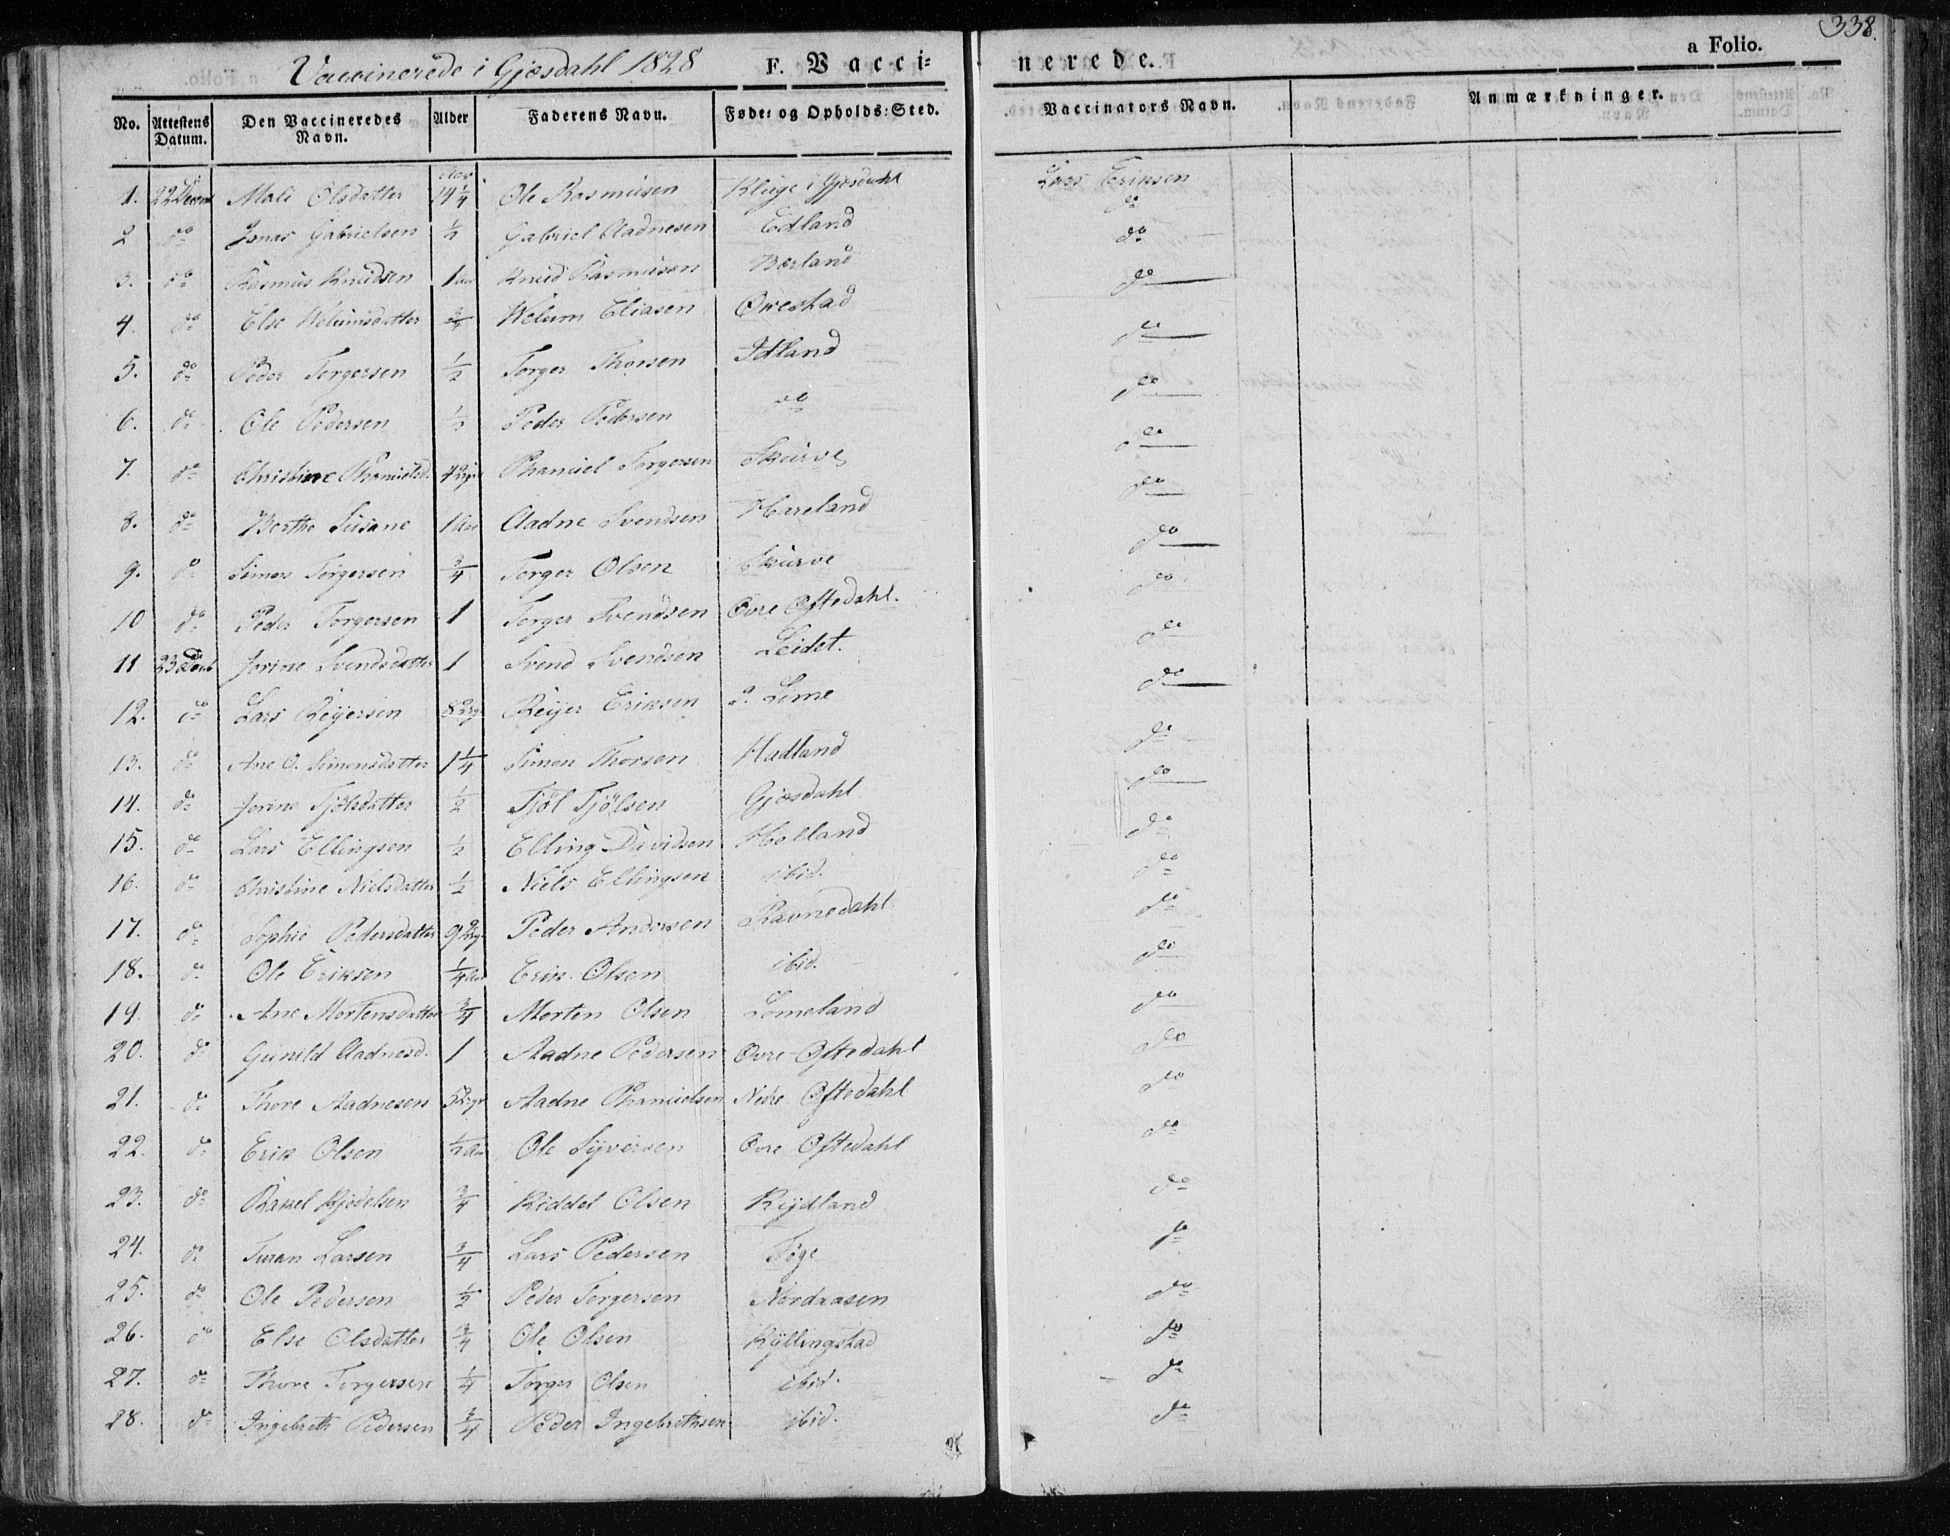 338.
Vaccinerede i Gjesdahl 1828 F. Vacci= nerede. a Folio.
No. Attestens Datum. Den Vaccineredes Navn. Alder Faderens Navn. Føde= og Opholds=Sted. Vaccinators Navn. Anmærkninger.
Aar
1. 22 Decem Mali Olsdatter 14 1/4 Ole Rasmusen Kluge i Gjesdahl Lars Eriksen
2 do Jonas Gabrielsen 1/2 Gabriel Aadnesen Edland do
3. do Rasmus Knudsen 1 aar Knud Rasmusen Bærland do
4. do Else Welumsdatter 3/4 Welum Eliasen Ovestad do
5. do Peder Torgersen 1/2 Torger Thorsen Idland do
6. do Ole Pedersen 1/2 Peder Pedersen do do
7. do Christine Phanuelsd. 4 Phanuel Torgersen Skurve do
8. do Berthe Susane 1 Aar Aadne Svendsen Hareland do
9. do Simon Torgersen 3/4 Torger Olsen Skurve do
10 do Peder Torgersen 1 Torger Svendsen Øvre Oftedahl. do
11 23 Jorine Svendsdatter 1 Svend Svendsen Leidet. do
12. do Lars Reijersen 8 Reijer Eriksen Lime do
13. do Ane O. Simonsdatter 1 1/4 Simon Thorsen Hadland do
14. do Jorine Tjölsdatter 1/2 Tjöl Tjölsen Gjesdahl do
15. do Lars Ellingsen 1/2 Elling Davidsen Holland do
16. do Christine Nielsdatter 1/2 Niels Ellingsen ibid. do
17. do Sophie Pedersdatter 9 Peder Andersen Ravnedahl do
18. do Ole Eriksen 1/4 Aar Erik Olsen ibid. do
19. do Ane Mortensdatter 3/4 Morten Olsen Lomeland do
20. do Gunild Aadnesd. 1 Aadne Pedersen Øvre Oftedahl do
21. do Thore Aadnesen 5 Aadne Phanuelsen Nedre Oftedahl do
22. do Erik Olsen 1/2 Aar Ole Sijversen Øvre Oftedahl do
23. do Rakel Kjedelsen 3/4 Kiddel Olsen Rijdland do
24. do Svran Larsen 3/4 Lars Pedersen Föge do
25. do Ole Pedersen 1/2 Peder Torgersen Nordaasen do
26. do Else Olsdatter 3/4 Ole Olsen Kijllingstad do
27. do Thore Torgersen 1/4 Torger Olsen ibid. do
28. do Ingebreth Pedersen 3/4 Peder Ingebrethsen ibid. do